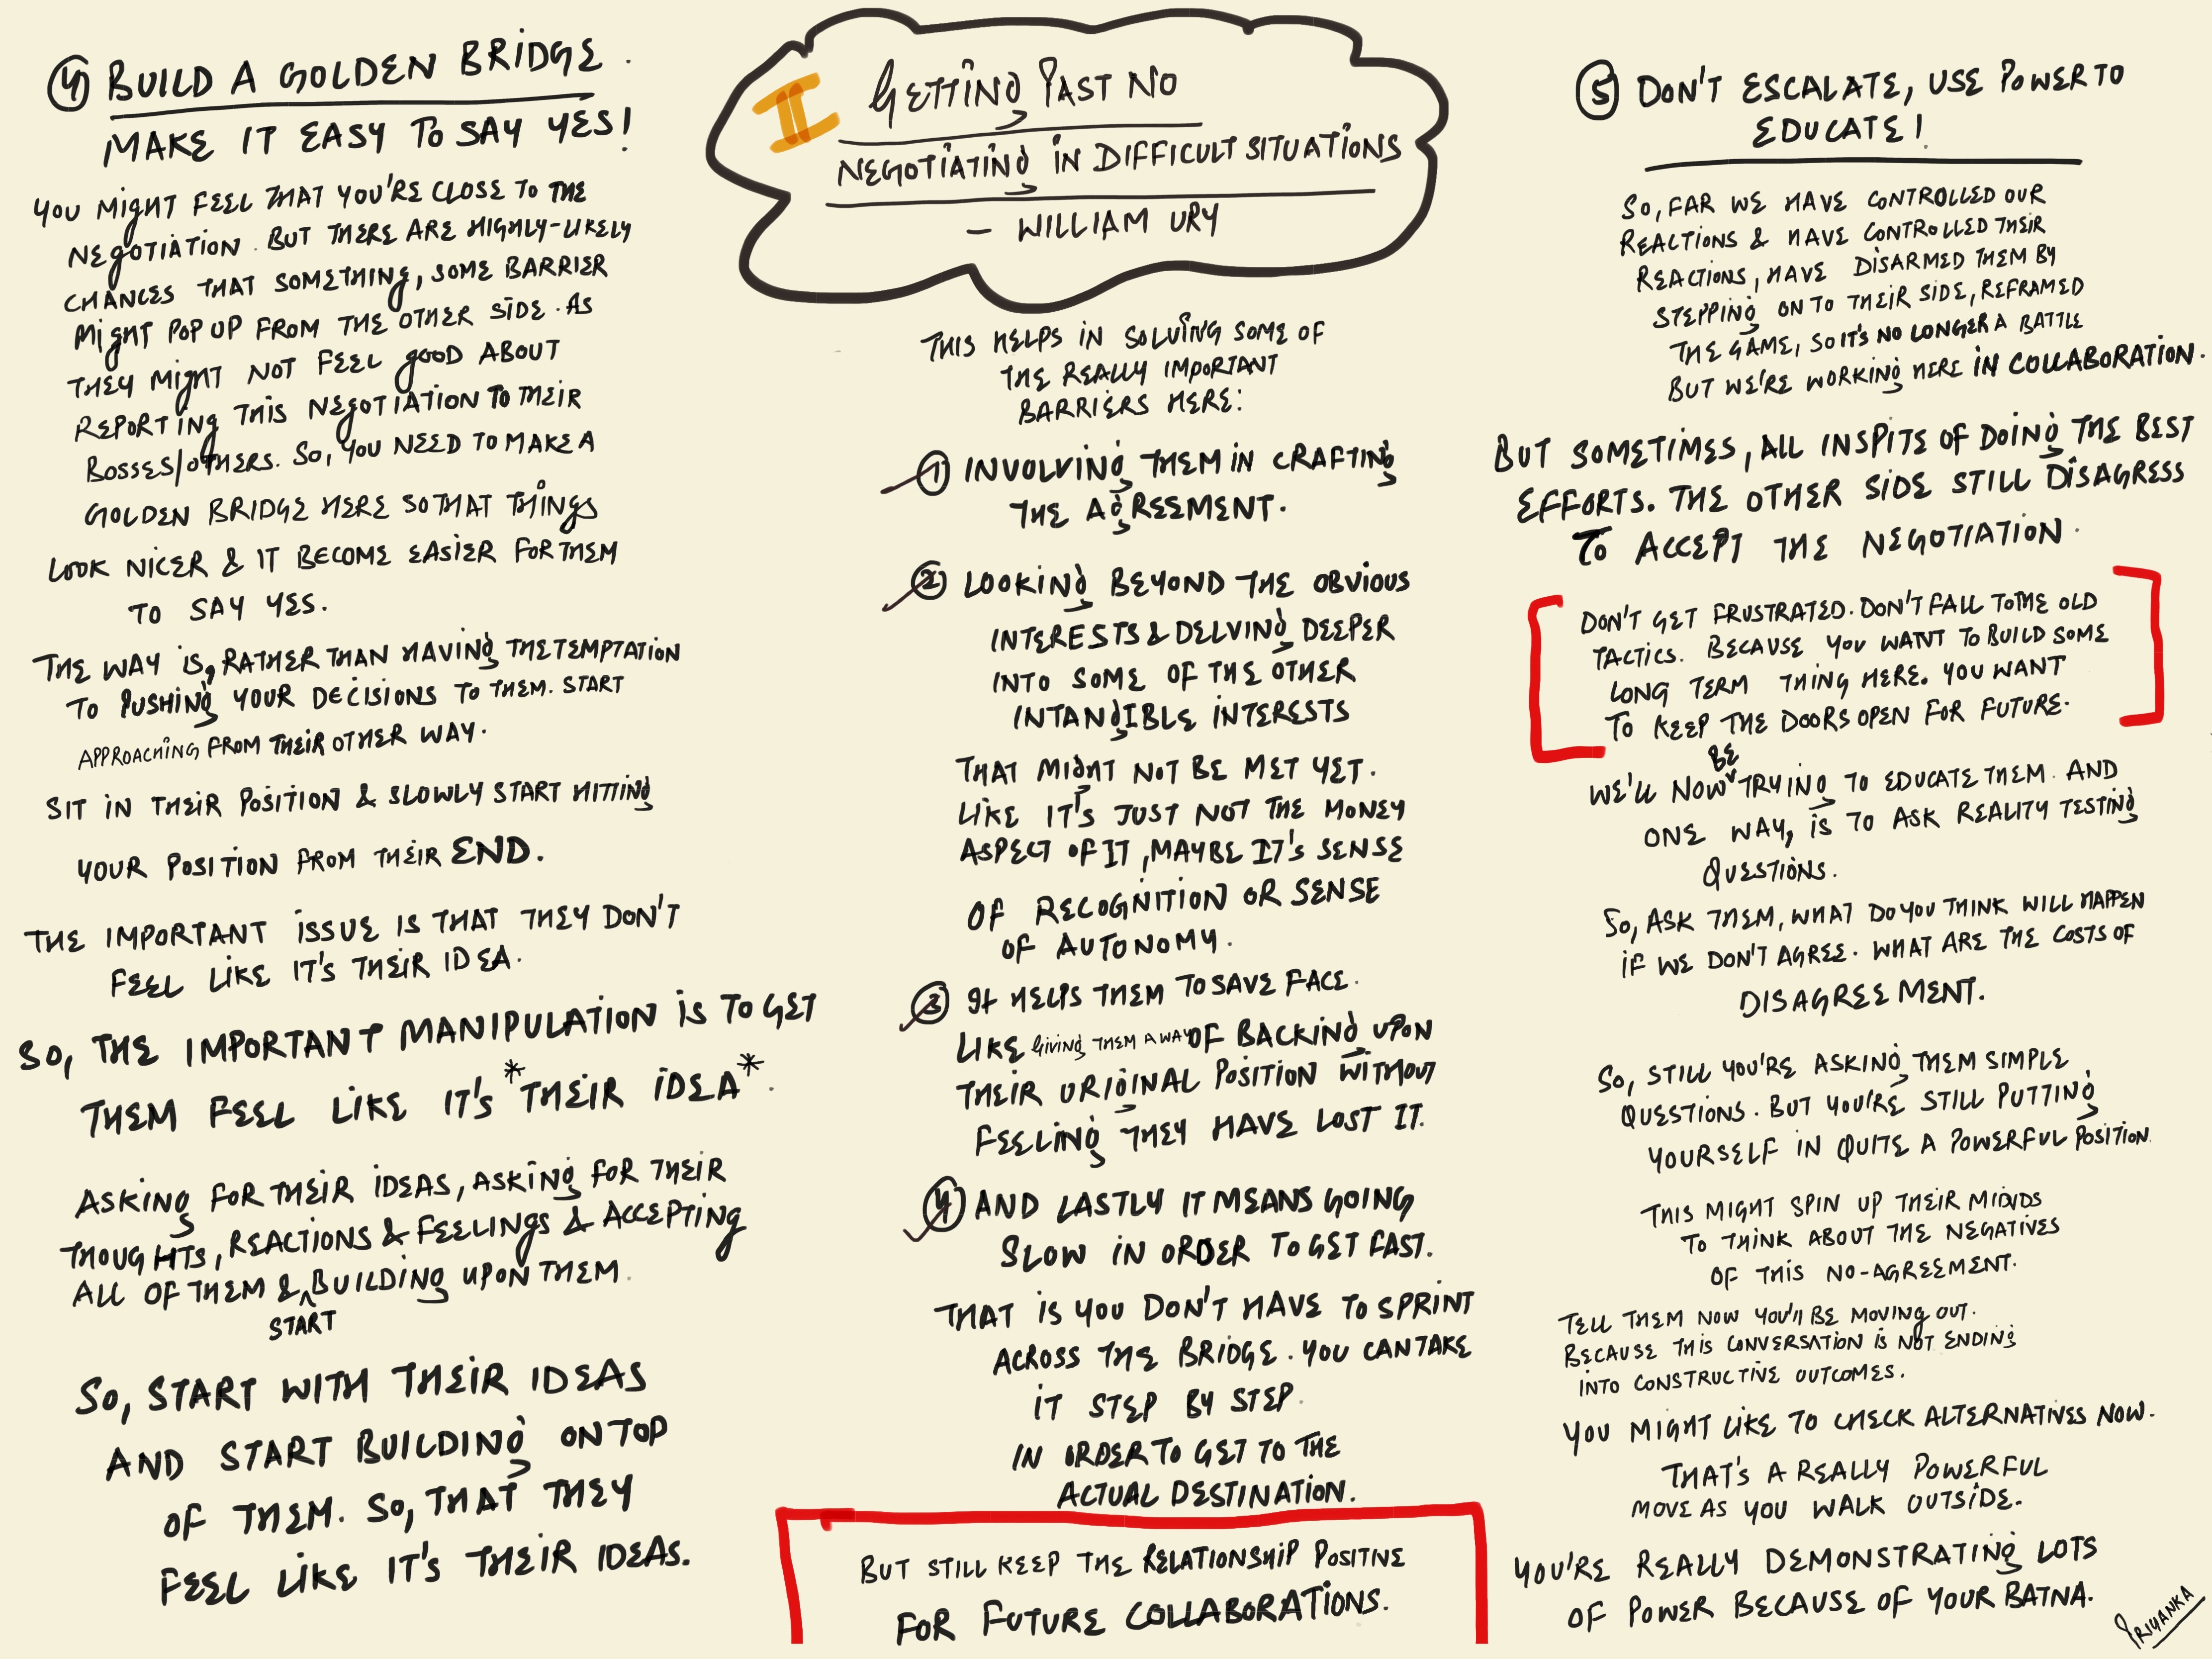 II
GETTING PAST NO
NEGOTIATING IN DIFFICULT SITUATIONS
- WILLIAM URY
④ BUILD A GOLDEN BRIDGE.
MAKE IT EASY TO SAY YES!
YOU MIGHT FEEL THAT YOU'RE CLOSE TO THE
NEGOTIATION. BUT THERE ARE HIGHLY-LIKELY
CHANCES THAT SOMETHING, SOME BARRIER
MIGHT POP UP FROM THE OTHER SIDE. AS
THEY MIGHT NOT FEEL GOOD ABOUT
REPORTING THIS NEGOTIATION TO THEIR
BOSSES/OTHERS. SO, YOU NEED TO MAKE A
GOLDEN BRIDGE HERE SO THAT THINGS
LOOK NICER & IT BECOME EASIER FOR THEM
TO SAY YES.
THE WAY IS, RATHER THAN HAVING THE TEMPTATION
TO PUSHING YOUR DECISIONS TO THEM. START
APPROACHING FROM THEIR OTHER WAY.
SIT IN THEIR POSITION & SLOWLY START HITTING
YOUR POSITION FROM THEIR END.
THE IMPORTANT ISSUE IS THAT THEY DON'T
FEEL LIKE IT'S THEIR IDEA.
SO, THE IMPORTANT MANIPULATION IS TO GET
THEM FEEL LIKE IT'S *THEIR IDEA*.
ASKING FOR THEIR IDEAS, ASKING FOR THEIR
THOUGHTS, REACTIONS & FEELINGS & ACCEPTING
ALL OF THEM & START BUILDING UPON THEM.
SO, START WITH THEIR IDEAS
AND START BUILDING ON TOP
OF THEM. SO, THAT THEY
FEEL LIKE IT'S THEIR IDEAS.
THIS HELPS IN SOLVING SOME OF
THE REALLY IMPORTANT
BARRIERS HERE:
① INVOLVING THEM IN CRAFTING
THE AGREEMENT.
② LOOKING BEYOND THE OBVIOUS
INTERESTS & DELVING DEEPER
INTO SOME OF THE OTHER
INTANGIBLE INTERESTS
THAT MIGHT NOT BE MET YET.
LIKE IT'S JUST NOT THE MONEY
ASPECT OF IT, MAYBE IT'S SENSE
OF RECOGNITION OR SENSE
OF AUTONOMY.
③ IT HELPS THEM TO SAVE FACE.
LIKE GIVING THEM A WAY OF BACKING UPON
THEIR ORIGINAL POSITION WITHOUT
FEELING THEY HAVE LOST IT.
④ AND LASTLY IT MEANS GOING
SLOW IN ORDER TO GET FAST.
THAT IS YOU DON'T HAVE TO SPRINT
ACROSS THE BRIDGE. YOU CAN TAKE
IT STEP BY STEP.
IN ORDER TO GET TO THE
ACTUAL DESTINATION.
BUT STILL KEEP THE RELATIONSHIP POSITIVE
FOR FUTURE COLLABORATIONS.
⑤ DON'T ESCALATE, USE POWER TO
EDUCATE!
SO, FAR WE HAVE CONTROLLED OUR
REACTIONS & HAVE CONTROLLED THEIR
REACTIONS, HAVE DISARMED THEM BY
STEPPING ON TO THEIR SIDE, REFRAMED
THE GAME, SO IT'S NO LONGER A BATTLE
BUT WE'RE WORKING HERE IN COLLABORATION.
BUT SOMETIMES, ALL INSPITE OF DOING THE BEST
EFFORTS. THE OTHER SIDE STILL DISAGRESS
TO ACCEPT THE NEGOTIATION.
DON'T GET FRUSTRATED. DON'T FALL TO THE OLD
TACTICS. BECAUSE YOU WANT TO BUILD SOME
LONG TERM THING HERE. YOU WANT
TO KEEP THE DOORS OPEN FOR FUTURE.
WE'LL NOW BE TRYING TO EDUCATE THEM. AND
ONE WAY, IS TO ASK REALITY TESTING
QUESTIONS.
SO, ASK THEM, WHAT DO YOU THINK WILL HAPPEN
IF WE DON'T AGREE. WHAT ARE THE COSTS OF
DISAGREEMENT.
SO, STILL YOU'RE ASKING THEM SIMPLE
QUESTIONS. BUT YOU'RE STILL PUTTING
YOURSELF IN QUITE A POWERFUL POSITION.
THIS MIGHT SPIN UP THEIR MINDS
TO THINK ABOUT THE NEGATIVES
OF THIS NO-AGREEMENT.
TELL THEM NOW YOU'LL BE MOVING OUT.
BECAUSE THIS CONVERSATION IS NOT ENDING
INTO CONSTRUCTIVE OUTCOMES.
YOU MIGHT LIKE TO CHECK ALTERNATIVES NOW.
THAT'S A REALLY POWERFUL
MOVE AS YOU WALK OUTSIDE.
YOU'RE REALLY DEMONSTRATING LOTS
OF POWER BECAUSE OF YOUR BATNA.
PRIYANKA